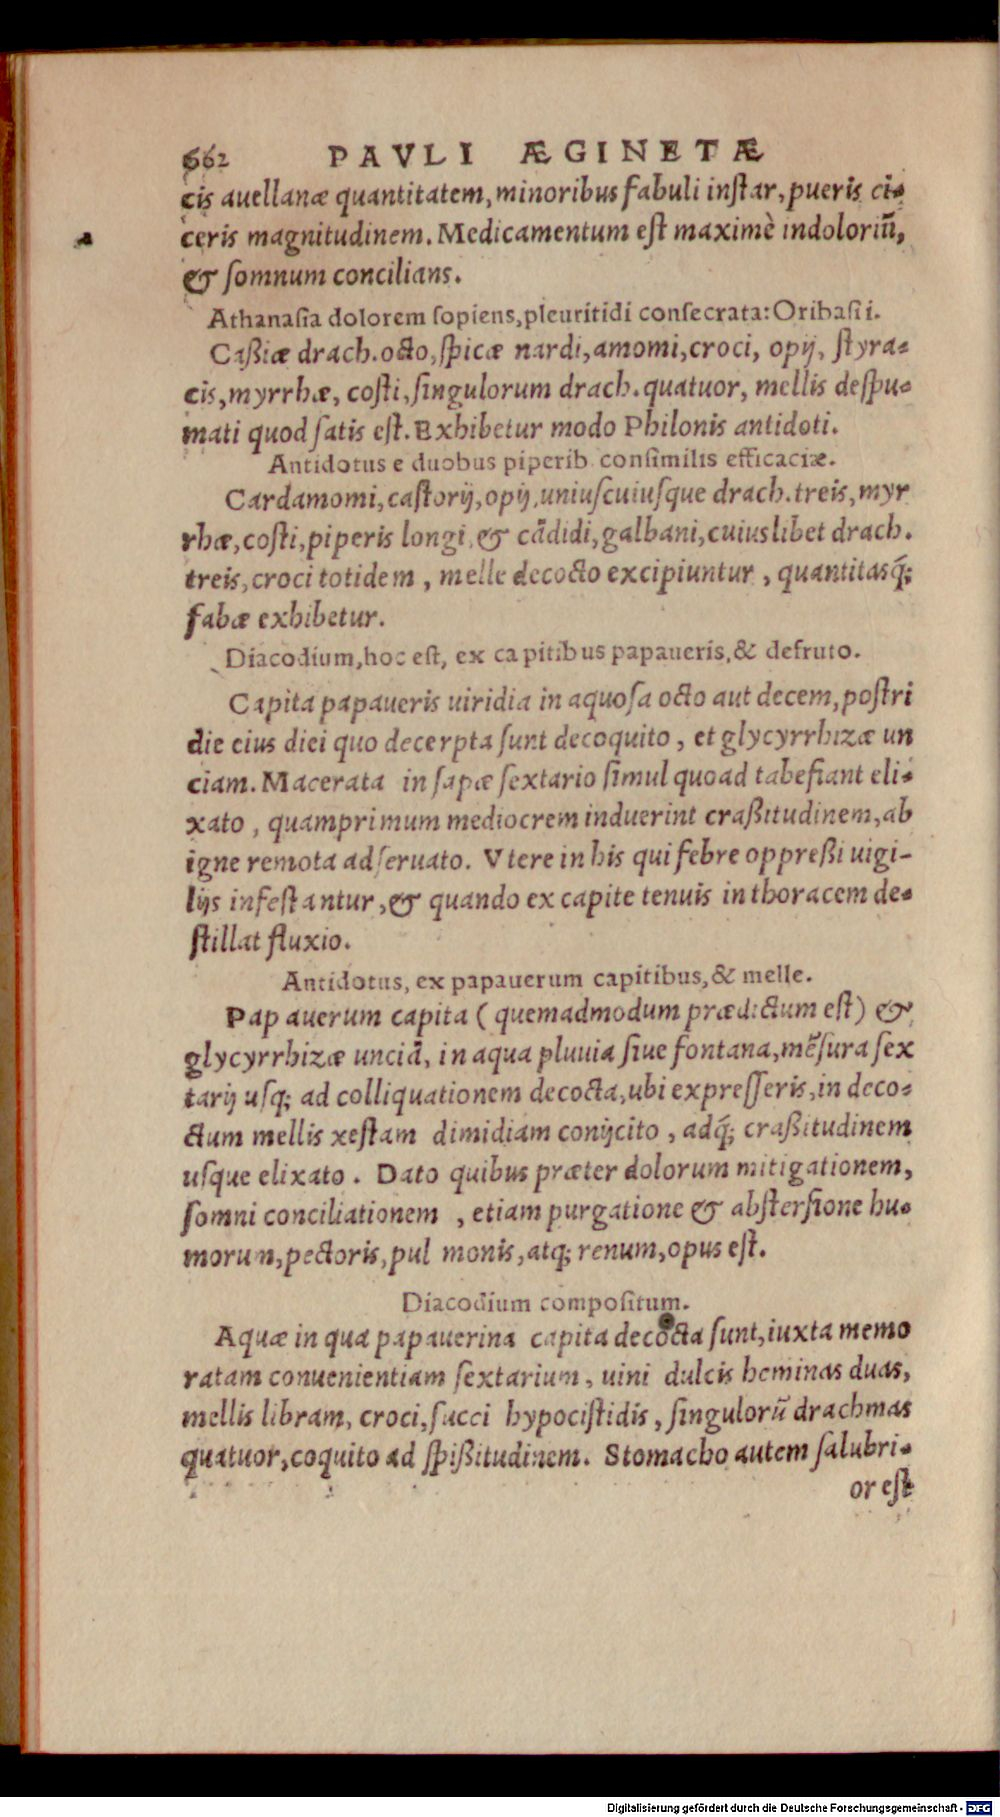 662 PAVLI ÆGINETÆ
cis auellanæ quantitatem, minoribus fabuli inſtar, pueris ci-
ceris magnitudinem. Medicamentum eſt maximè indoloriū,
& ſomnum concilians.
Athanaſia dolorem ſopiens, pleuritidi conſecrata: Oribaſii.
Caßiæ drach. octo, ſpicæ nardi, amomi, croci, opij, ſtyra-
cis, myrrhæ, coſti, ſingulorum drach. quatuor, mellis deſpu-
mati quod ſatis eſt. Exhibetur modo Philonis antidoti.
Antidotus e duobus piperib. conſimilis efficaciæ.
Cardamomi, caſtorij, opij, uniuſcuiuſque drach. treis, myr
rhæ, coſti, piperis longi, & cādidi, galbani, cuiuslibet drach.
treis, croci totidem, melle decocto excipiuntur, quantitasq́;
fabæ exhibetur.
Diacodium, hoc eſt, ex capitibus papaueris, & defruto.
Capita papaueris uiridia in aquoſa octo aut decem, poſtri
die eius diei quo decerpta ſunt decoquito, et glycyrrhizæ un
ciam. Macerata in ſapæ ſextario ſimul quoad tabefiant eli-
xato, quamprimum mediocrem induerint craßitudinem, ab
igne remota adſeruato. Vtere in his qui febre oppreßi uigi-
lijs infeſtantur, & quando ex capite tenuis in thoracem de-
ſtillat fluxio.
Antidotus, ex papauerum capitibus, & melle.
Papauerum capita (quemadmodum prædictum eſt) &
glycyrrhizæ unciā, in aqua pluuia ſiue fontana, mēſura ſex
tarij uſq; ad colliquationem decocta, ubi expreſſeris, in deco-
ctum mellis xeſtam dimidiam conijcito, adq́; craßitudinem
uſque elixato. Dato quibus præter dolorum mitigationem,
ſomni conciliationem, etiam purgatione & abſterſione hu-
morum, pectoris, pulmonis, atq; renum, opus eſt.
Diacodium compoſitum.
Aquæ in qua papauerina capita decocta ſunt, iuxta memo
ratam conuenientiam ſextarium, uini dulcis heminas duas,
mellis libram, croci, ſucci hypociſtidis, ſingulorū drachmas
quatuor, coquito ad ſpißitudinem. Stomacho autem ſalubri-
or eſt
Digitalisierung gefördert durch die Deutsche Forschungsgemeinschaft - DFG